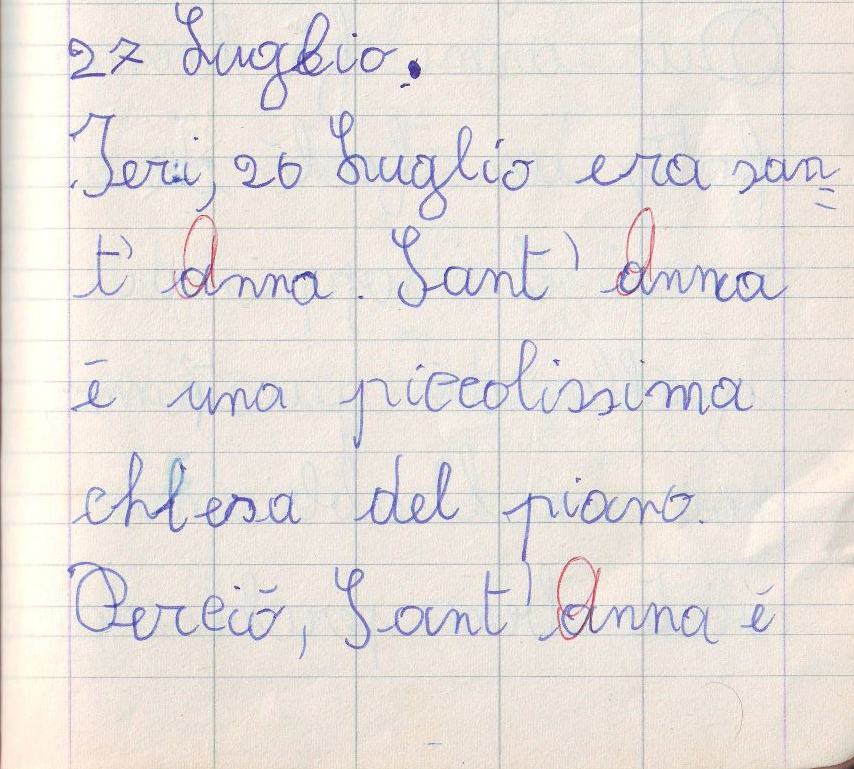 27 Luglio.
Ieri, 26 Luglio era san=
t' Anna. Sant' Anna
é una piccolissima
chiesa del piano.
Perciò, Sant' Anna é